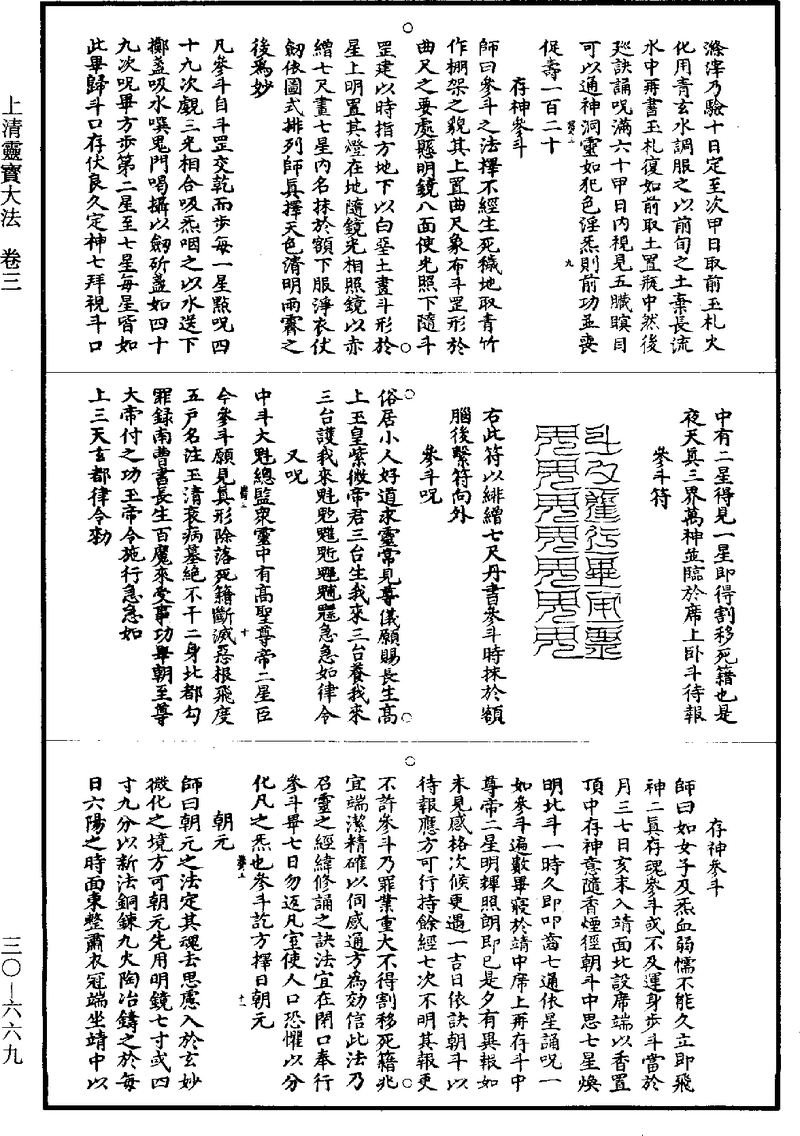 上清靈寶大法　卷三
三〇—六六九
滌滓乃驗十日定至次甲日取前玉札火
化用青玄水調服之以前旬之土棄長流
水中再書玉札復如前取土置瓶中然後
廵訣誦呪滿六十甲日內視見五臟瞑目
可以通神洞靈如犯色淫炁則前功盃喪
促壽一百二十
存神參斗
師曰參斗之法擇不經生死穢地取青竹
作棚架之貌其上置曲尺象布斗罡形於
曲尺之要處懸明鏡八面使光照下隨斗
罡建以時指方地下以白堊土畫斗形於
星上明置其燈在地隨鏡光相照鏡以赤
繒七尺畫七星內名抹於額下服淨衣伏
劒依圖式排列師真擇天色清明雨霽之
後爲妙
凡參斗自斗罡交乾而步每一星㸃呪四
十九次覷三光相合吸炁咽之以水送下
擲盞吸水噀鬼門喝攝以劒斫盞如四十
九次呪畢方步第二星至七星每星皆如
此畢歸斗口存伏良久定神七拜視斗口
中有二星得見一星即得割移死籍也是
夜天真三界萬神並臨於席上卧斗待報
參斗符
右此符以緋繒七尺丹書參斗時抹於額
腦後繫符向外
參斗呪
俗居小人好道求靈常見尊儀願賜長生高
上玉皇紫微帝君三台生我來三台養我來
三台護我來魁䰢䰡魓魒急急如律令
又呪
中斗大魁總監衆靈中有高聖尊帝二星臣
今參斗願見真形除落死籍斷滅惡根飛度
五戶名注玉清衰病墓絶不干二身北都勾
罪録南曹書長生百魔來受事功舉朝至尊
大帝付之功玉帝令施行急急如
上三天玄都律令勑
存神參斗
師曰如女子及炁血弱懦不能久立即飛
神二真存魂參斗或不及運身步斗當於
月三七日亥末入靖面北設席端以香置
頂中存神意隨香煙徑朝斗中思七星煥
明北斗一時久即叩齒七通依星誦呪一
如參斗遍數畢寢於靖中席上再存斗中
尊帝二星明輝照朗即已是夕有異報如
未見感格次候更遇一吉日依訣朝斗以
待報應方可行持餘經七次不明其報更
不許參斗乃罪業重大不得割移死籍兆
宜端潔精確以伺感通方為効信此法乃
召靈之經緯修誦之訣法宜在閉口奉行
參斗畢七日勿迈凡室使人口恐懼以分
化凡之炁也參斗訖方擇日朝元
朝元
師曰朝元之法定其魂去思慮入於玄妙
微化之境方可朝元先用明鏡七寸或四
寸九分以新法銅鍊九火陶冶鑄之於每
日六陽之時面東整肅衣冠端坐靖中以